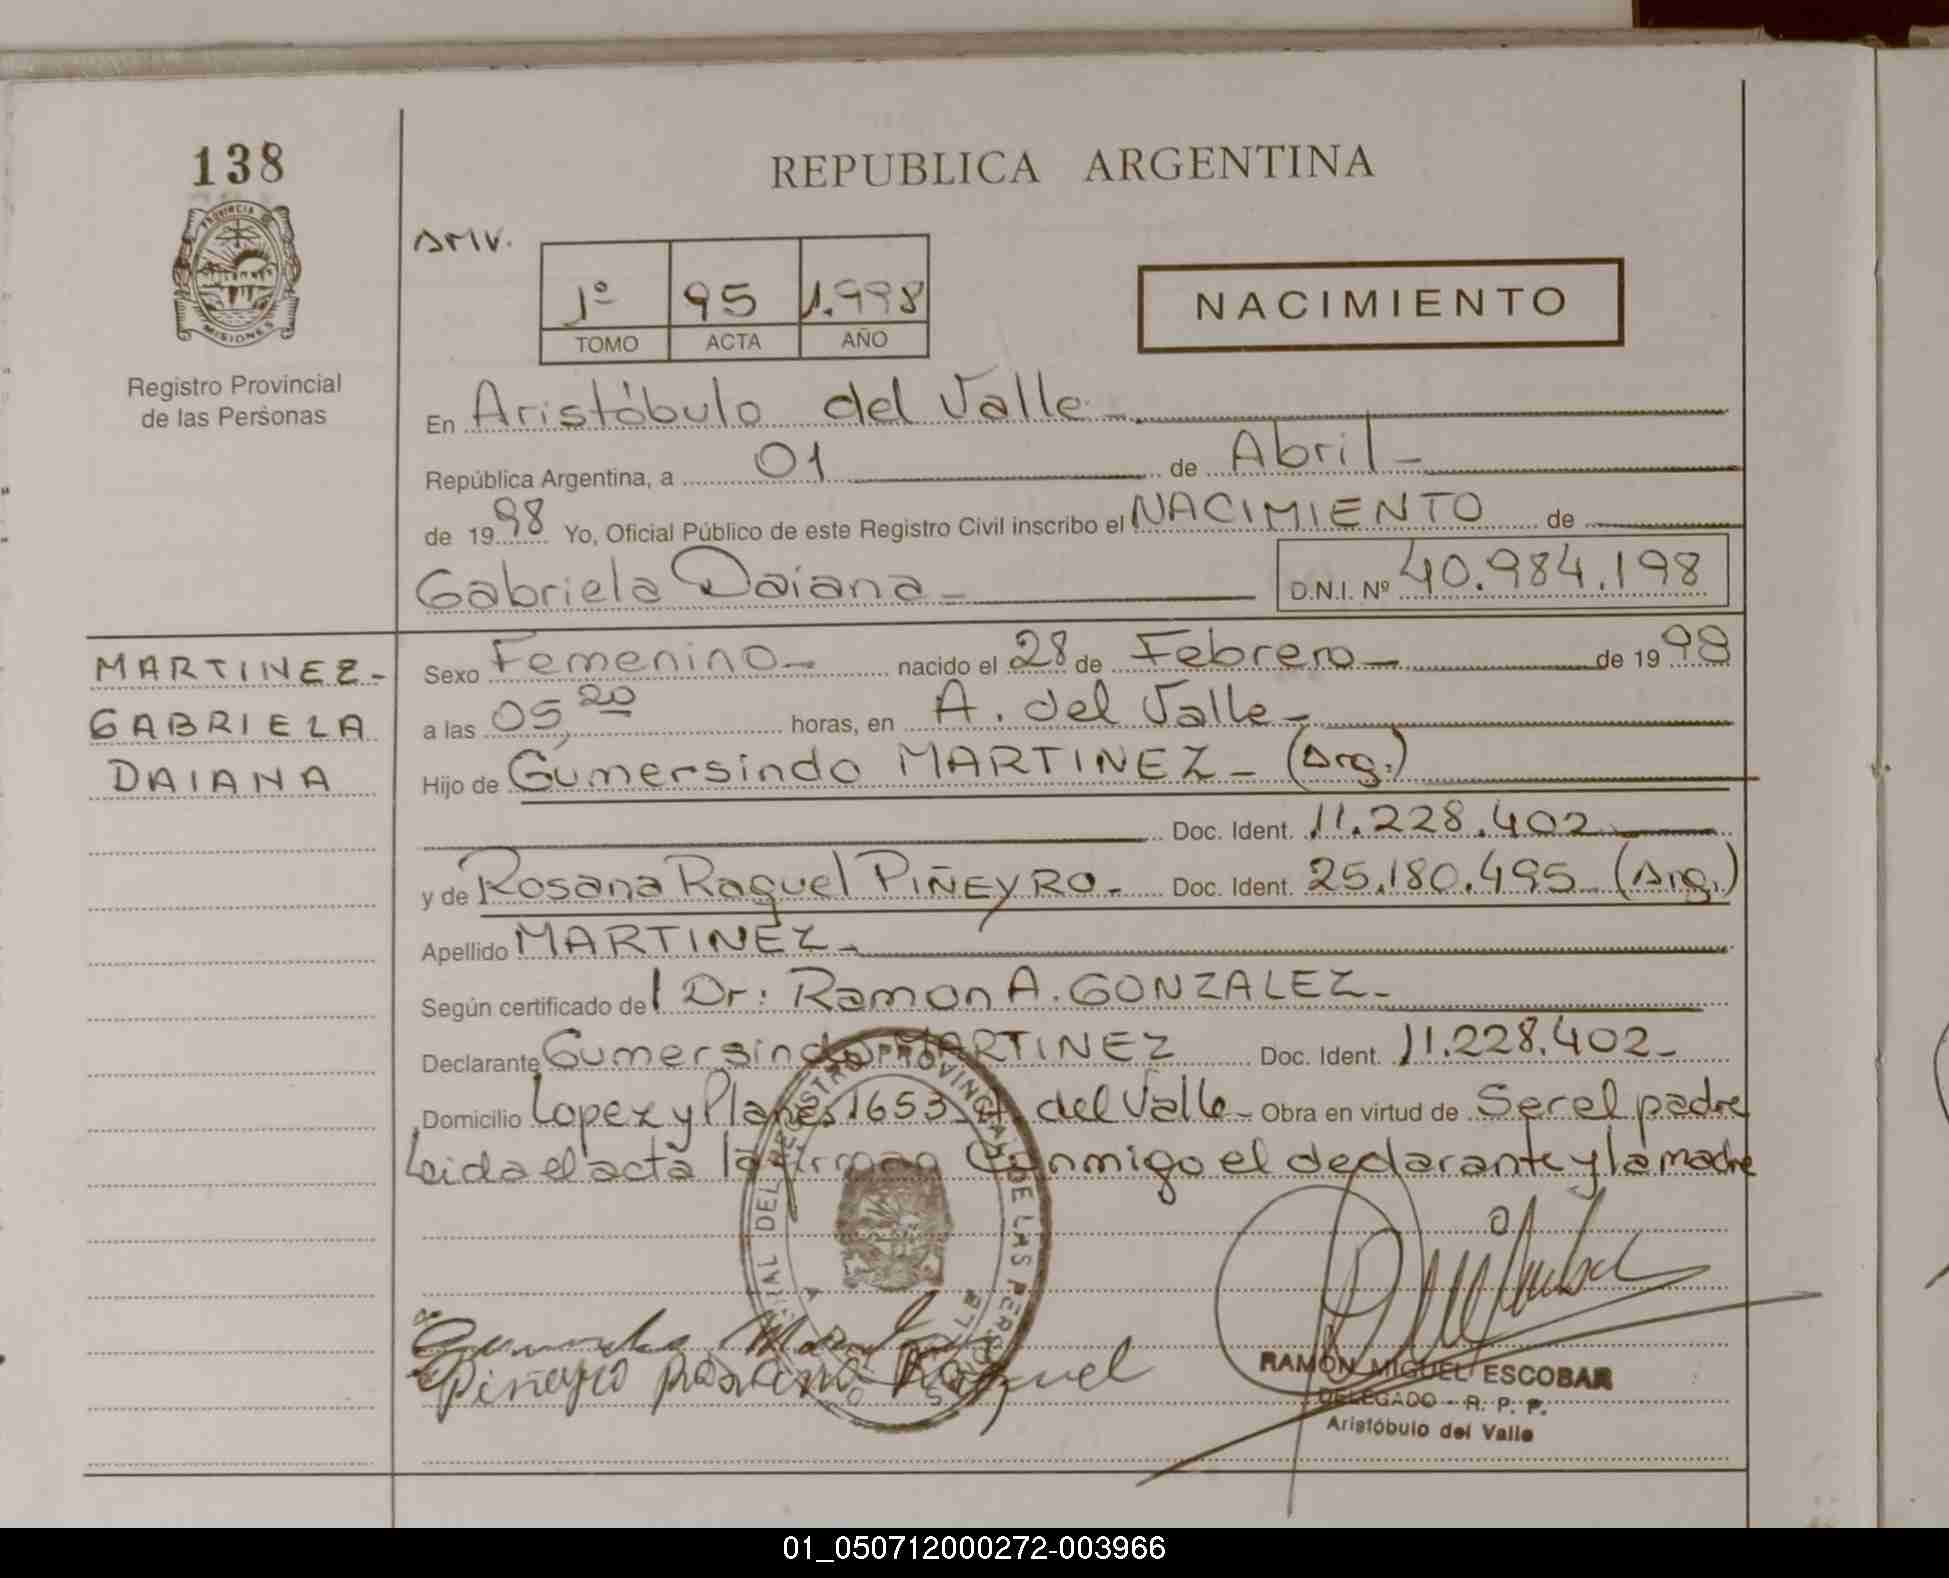 138
REPUBLICA ARGENTINA
PROVINCIA DE
MISIONES
Registro Provincial
de las Personas
AMV.
1º 95 1.998
TOMO ACTA AÑO
NACIMIENTO
En Aristóbulo del Valle
República Argentina, a 01 de Abril
de 1998 Yo, Oficial Público de este Registro Civil inscribo el NACIMIENTO de
Gabriela Daiana D.N.I. Nº 40.984.198
MARTINEZ-
GABRIELA
DAIANA
Sexo Femenino nacido el 28 de Febrero de 1998
a las 05,20 horas, en A. del Valle
Hijo de Gumersindo MARTINEZ - (Arg.)
Doc. Ident. 11.228.402
y de Rosana Raquel PIÑEYRO. Doc. Ident. 25.180.495 (Arg.)
Apellido MARTINEZ
Según certificado del Dr: Ramon A. GONZALEZ
Declarante Gumersindo MARTINEZ Doc. Ident. 11.228.402
Domicilio Lopez y Planes 1653 A. del Valle Obra en virtud de Ser el padre
Leida el acta la firman Conmigo el declarante y la madre
REGISTRO PROVINCIAL DE LAS PERSONAS
Piñeyro Rosana Raquel
RAMÓN MIGUEL ESCOBAR
DELEGADO - R. P. P.
Aristóbulo del Valle
01_050712000272-003966